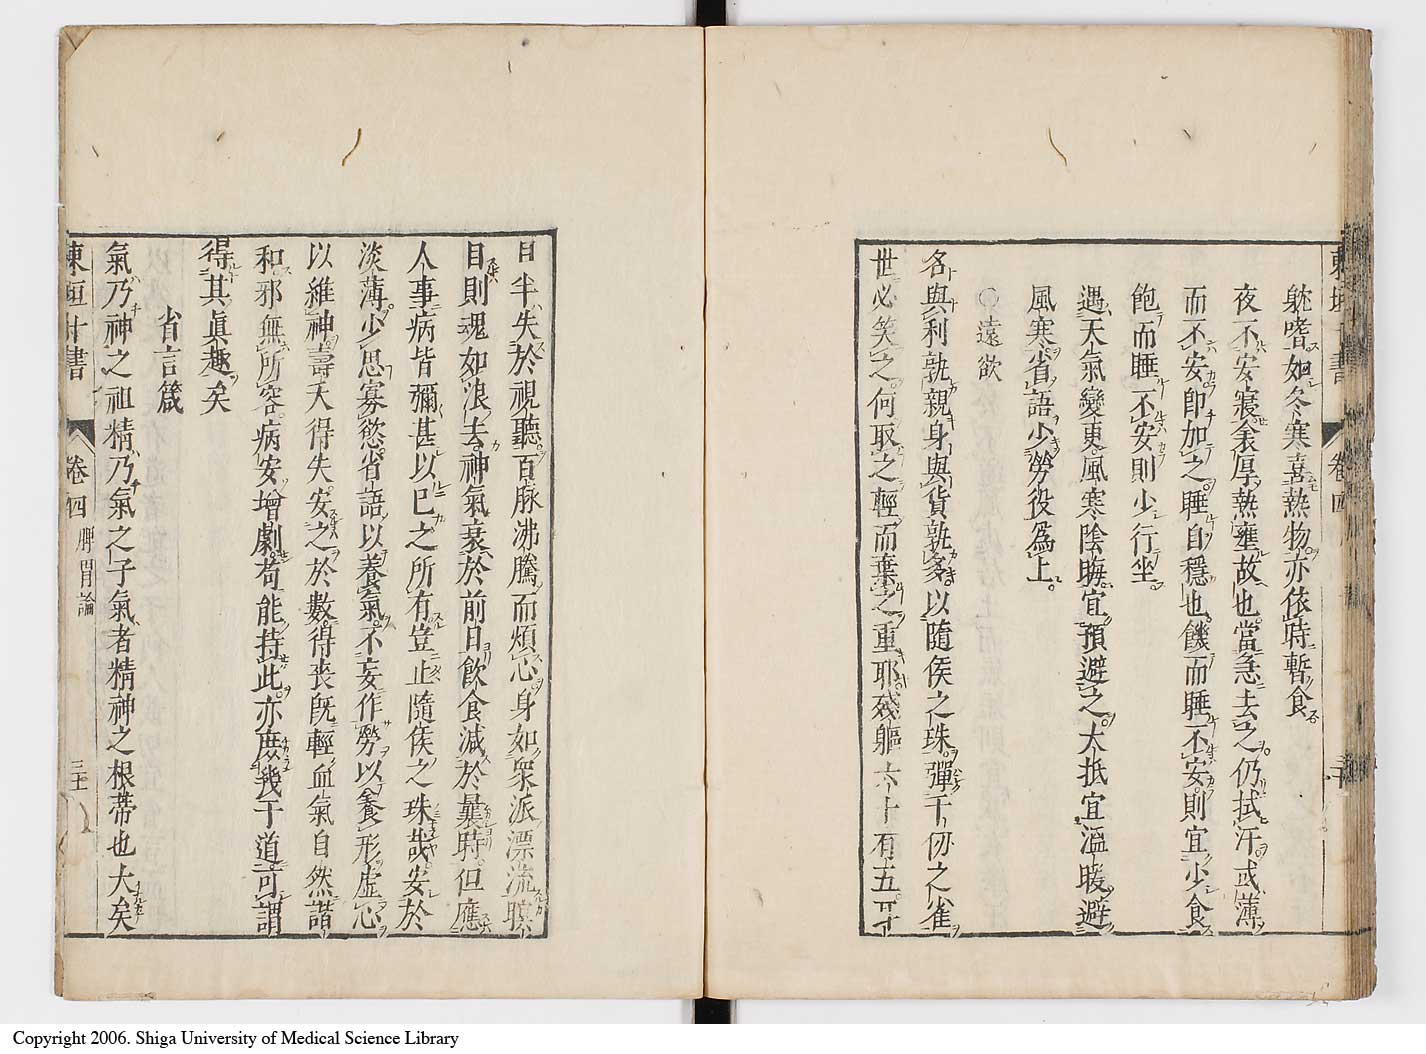 躭嗜如冬寒喜熱物亦依時暫食
夜不安寢衾厚熱壅故也當急去之仍拭汗或薄
而不安即加之睡自穩也饑而睡不安則宜少食
飽而睡不安則少行坐
遇天氣變更風寒陰晦宜預避之大抵宜溫暖避
風寒省語少勞役爲上
○遠欲
名與利孰親身與貨孰多以隨侯之珠彈千仞之雀
世必笑之何取之輕而棄之重耶殘軀六十有五耳
目半失於視聽百脉沸騰而煩心身如衆派漂流瞑
目則魂如浪去神氣衰於前日飲食減於曩時但應
人事病皆彌甚以已之所有豈止隨侯之珠哉安於
淡薄少思寡慾省語以養氣不妄作勞以養形虛心
以維神壽夭得失安之於數得喪既輕血氣自然諧
和邪無所容病安增劇苟能持此亦庶幾于道可謂
得其眞趣矣
省言箴
氣乃神之祖精乃氣之子氣者精神之根蒂也大矣
東垣十書 卷四 脾胃論
Copyright 2006. Shiga University of Medical Science Library